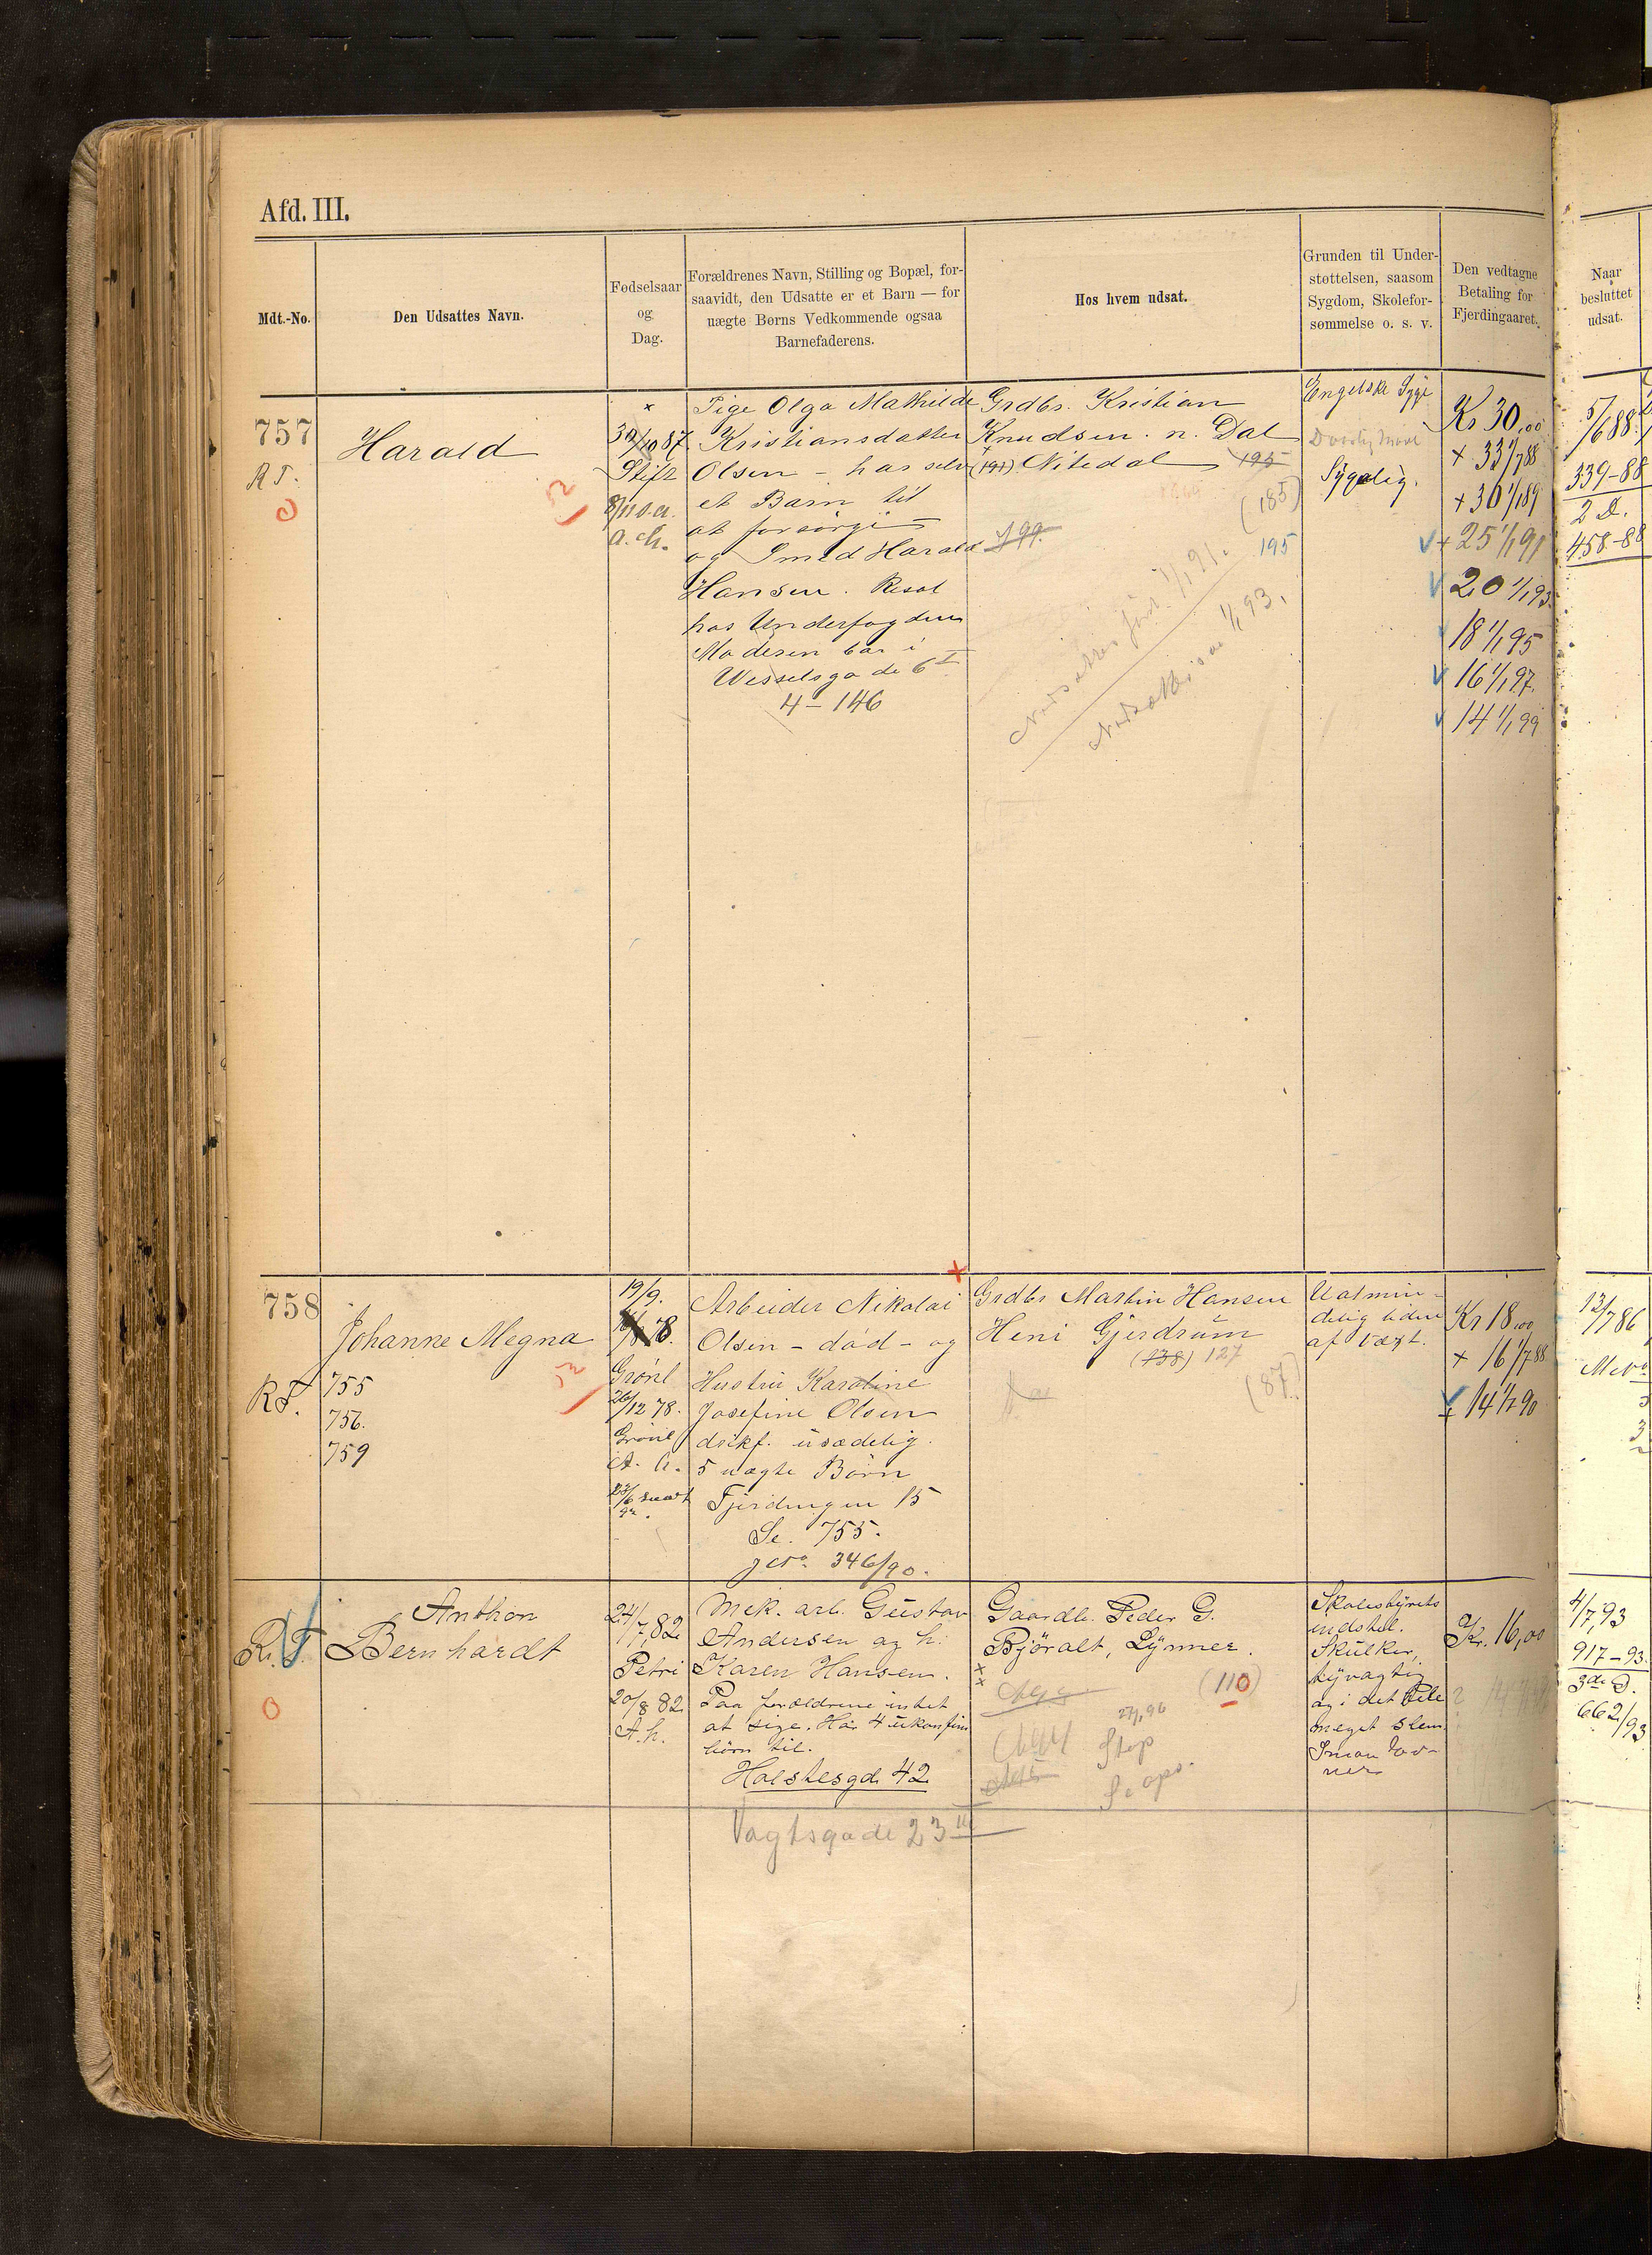 Afd. III.
Mdt.-No.
Den Udsattes Navn.
Fødselsaar
og
Dag.
Forældrenes Navn, Stilling og Bopæl, for-
saavidt, den Udsatte er et Barn — for
uægte Børns Vedkommende ogsaa
Barnefaderens.
Hos hvem udsat.
Grunden til Under-
støttelsen, saasom
Sygdom, Skolefor-
sømmelse o. s. v.
Den vedtagne
Betaling for
Fjerdingaaret.
Naar
besluttet
udsat.
757
R T.
Harald
52
87.
Stift
8/11 s.a.
a. ch.
Pige Olga Mathilde
Kristiansdatter
Olsen - har selv
et Barn til
at forsörge
og Smed Harald
Hansen. Resol
hos Underfogden
Moderen bor i
Wesselsgade 6 I
4 - 146
Grdbr. Kristian
Knudsen. n. Dal
(191) Nitedal 195
(185)
199.
195
1/1 91.
1/1 93.
Engelske Syge
Sygelig.
Kr 30,00
+ 33 1/7 88
+ 30 1/1 89
+ 25 1/1 91
20 1/1 93
18 1/1 95
16 1/1 97.
14 1/1 99
5/6 88
339-88
2 D.
458-88
758
R T.
Johanne Megna
755
756.
759
52
19/9.
78.
Grønl
26/12 78.
Grønl
A. h.
Arbeider Nikolai
Olsen - död - og
Hustru Karoline
Josefine Olsen
drikf. usædelig.
5 uægte Börn
Fjerdingen 15
Se. 755.
346/90.
Grdbr Martin Hansen
Heni Gjerdrum
(138) 127
(87)
Ualmin-
delig liden
af Væxt.
Kr 18,00
+ 16 1/7 88
+ 14 1/7 90
13/7 86
R. T.
Anthon
Bernhardt
24/7, 82
Petri
20/8 82
A. h.
Mek. arb. Gustav
Andersen og h.
Karen Hansen.
Paa forældrene intet
at sige. Har 4 ukonfirm
börn til.
Holstesgd. 42
Vagtsgade 23 III
Gaardb. Peder G.
Björalt, Lynner.
(110)
Stop
Skolestyrets
indstil.
Skulker,
tyvagtig
og i det hele
meget slem.
Kr. 16,00
4/7, 93
917-93.
3die D.
662/93